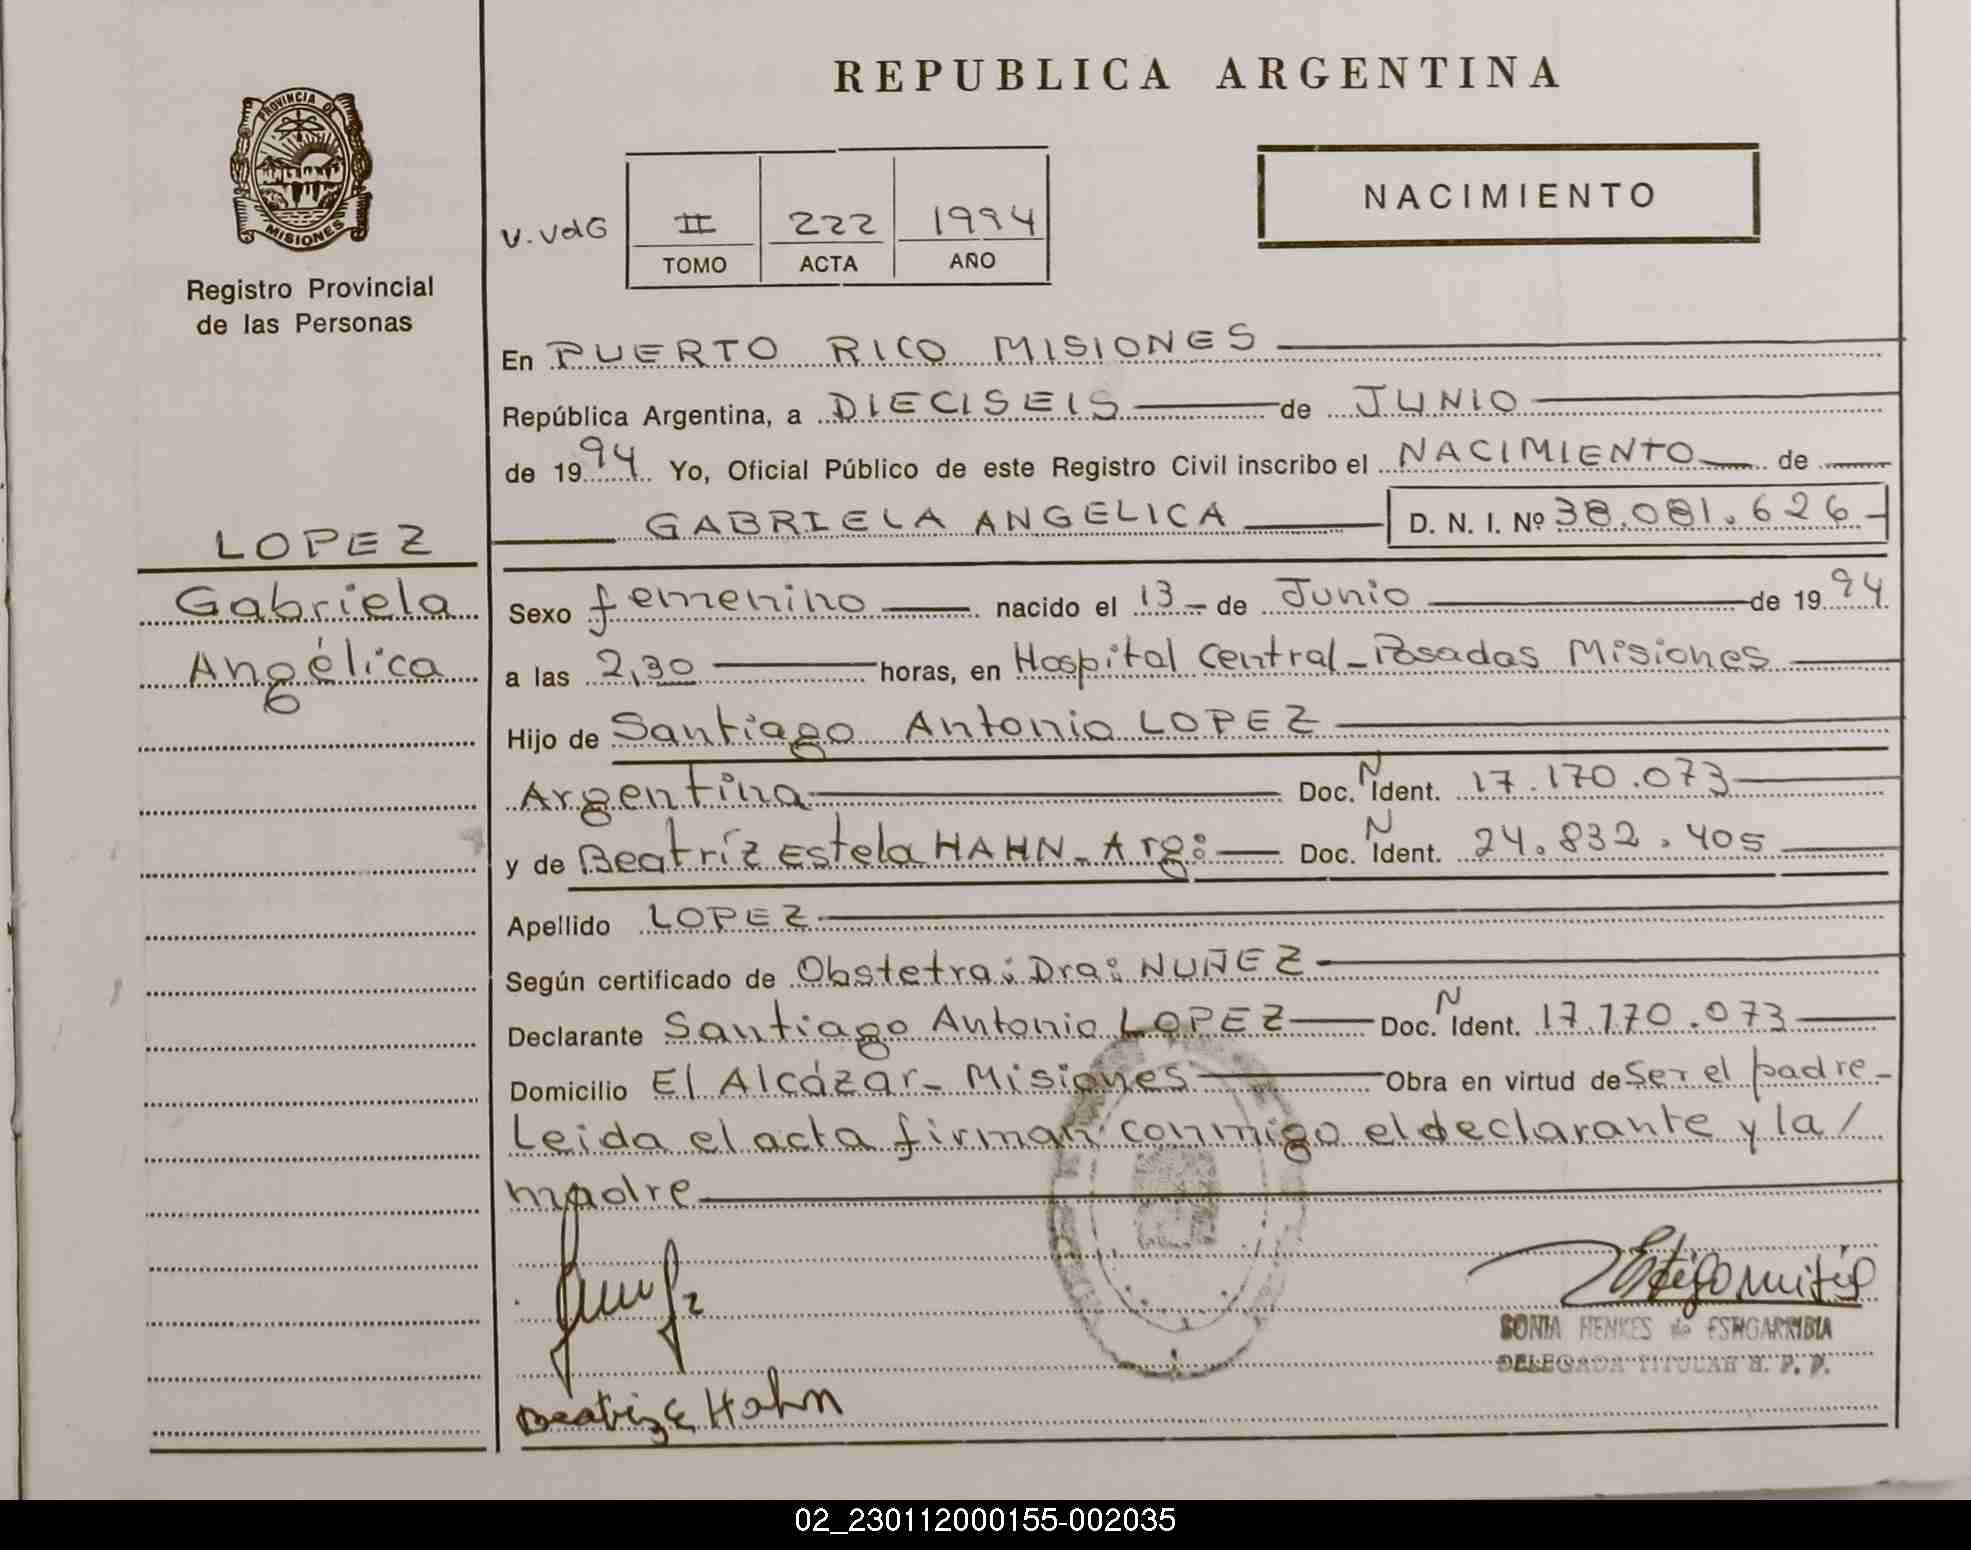 REPUBLICA ARGENTINA
PROVINCIA DE
MISIONES
Registro Provincial
de las Personas
V. VdG
II 222 1994
TOMO ACTA AÑO
NACIMIENTO
En PUERTO RICO MISIONES
República Argentina, a DIECISEIS de JUNIO
de 1994 Yo, Oficial Público de este Registro Civil inscribo el NACIMIENTO de
GABRIELA ANGELICA D. N. I. Nº 38.081.626
LOPEZ
Gabriela
Angélica
Sexo femenino nacido el 13 de Junio de 1994
a las 2,30 horas, en Hospital Central - Posadas Misiones
Hijo de Santiago Antonio LOPEZ
Argentina Doc. N Ident. 17.170.073
y de Beatríz Estela HAHN - Arg: Doc. N Ident. 24.832.405
Apellido LOPEZ
Según certificado de Obstetra: Dra: NUÑEZ
Declarante Santiago Antonio LOPEZ Doc. N Ident. 17.170.073
Domicilio El Alcázar - Misiones Obra en virtud de Ser el padre -
Leida el acta firman conmigo el declarante y la /
madre
SONIA HENKES de ESTIGARRIBIA
DELEGADA TITULAR R. P. P.
Beatriz E Hahn
02_230112000155-002035